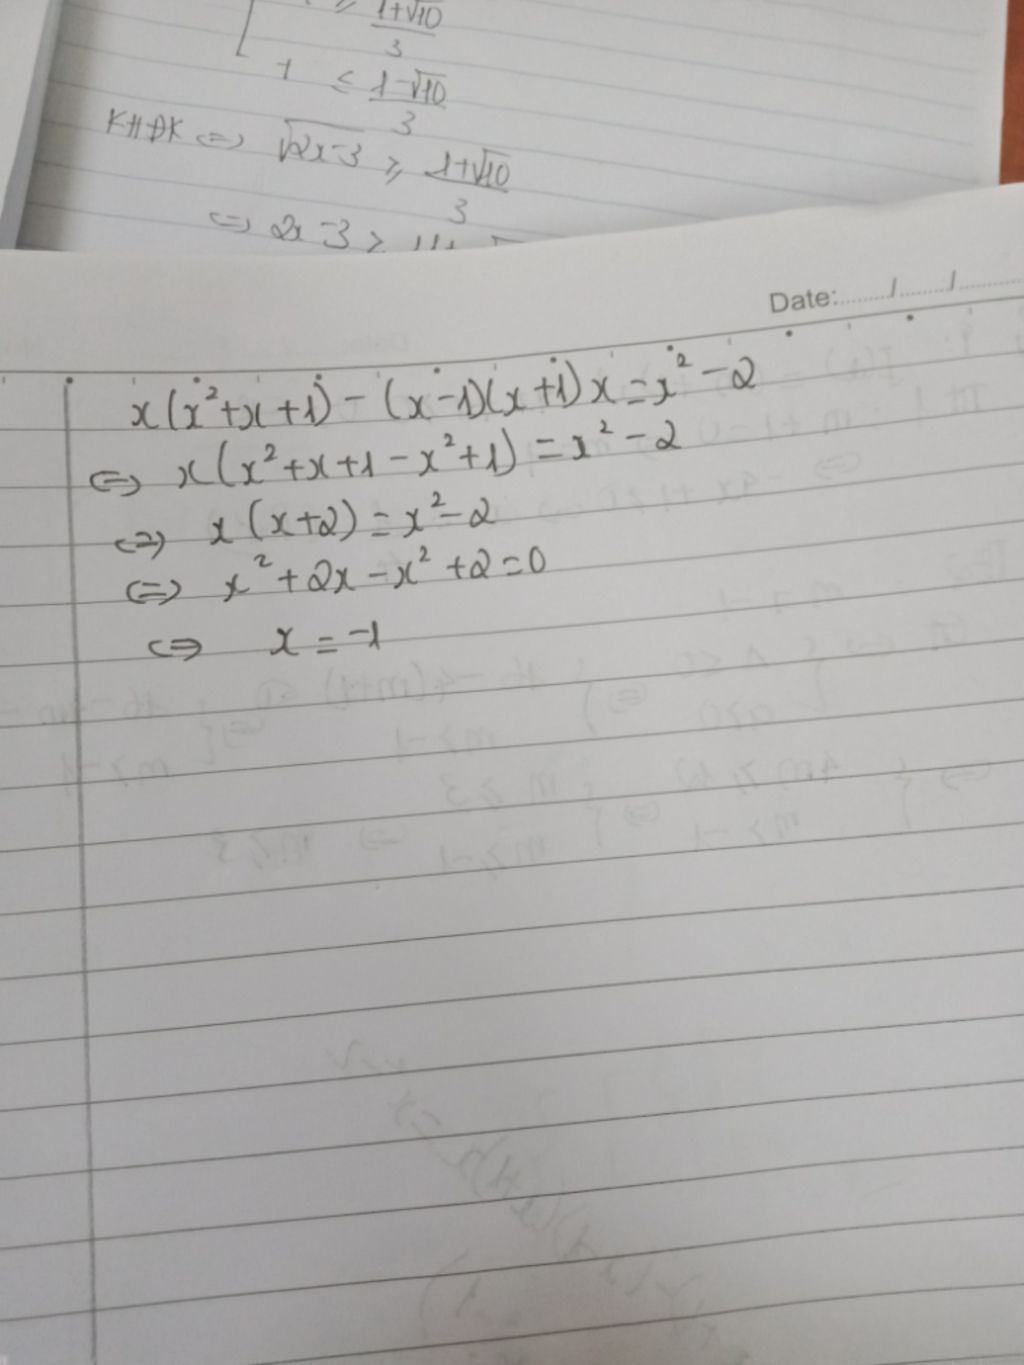 1+√10
3
1 ≤ 1-√10
3
KHĐK ⇔ √2x-3 ≥ 1+√10
3
⇔ 2x-3 ≥
Date:......./......./.......
x(x²+x+1) - (x-1)(x+1)x = x² - 2
⇔ x(x²+x+1-x²+1) = x² - 2
⇔ x(x+2) = x² - 2
⇔ x² + 2x - x² + 2 = 0
⇔ x = -1